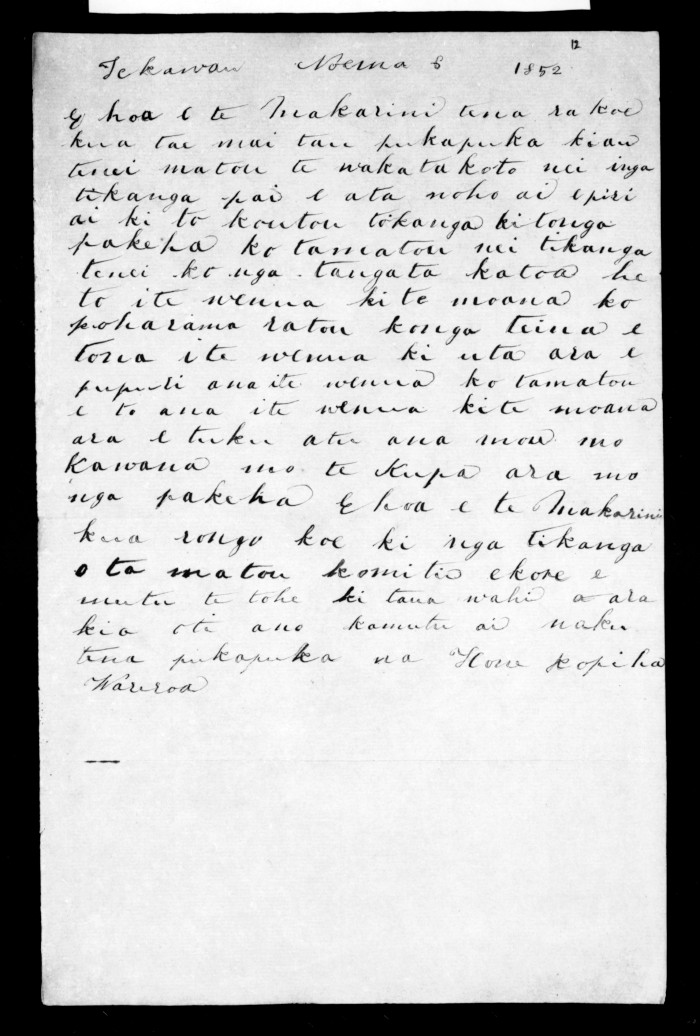 12
Tekawau Noema 8 1852
E hoa e te Makarini tena ra koe
kua tae mai tau pukapuka kiau
tenei matou te wakatakoto nei inga
tikanga pai e ata noho ai epiri
ai ki to koutou tokanga ki tonga
pakeha ko tamatou nei tikanga
tenei ko nga tangata katoa he
to ite wenua kite moana ko
poharama ratou konga teina e
tona ite wenua ki uta ara e
pupuri ana ite wenua ko tamatou
e to ana ite wenua kite moana
ara e tuku atu ana mou mo
Kawana mo te Kupa ara mo
nga pakeha E hoa e te Makarini
kua rongo koe ki nga tikanga
o ta matou komitie ekore e
mutu te tohe ki taua wahi a ara
kia oti ano kamutu ai naku
tena pukapuka na Hone Kopiha
Wareroa